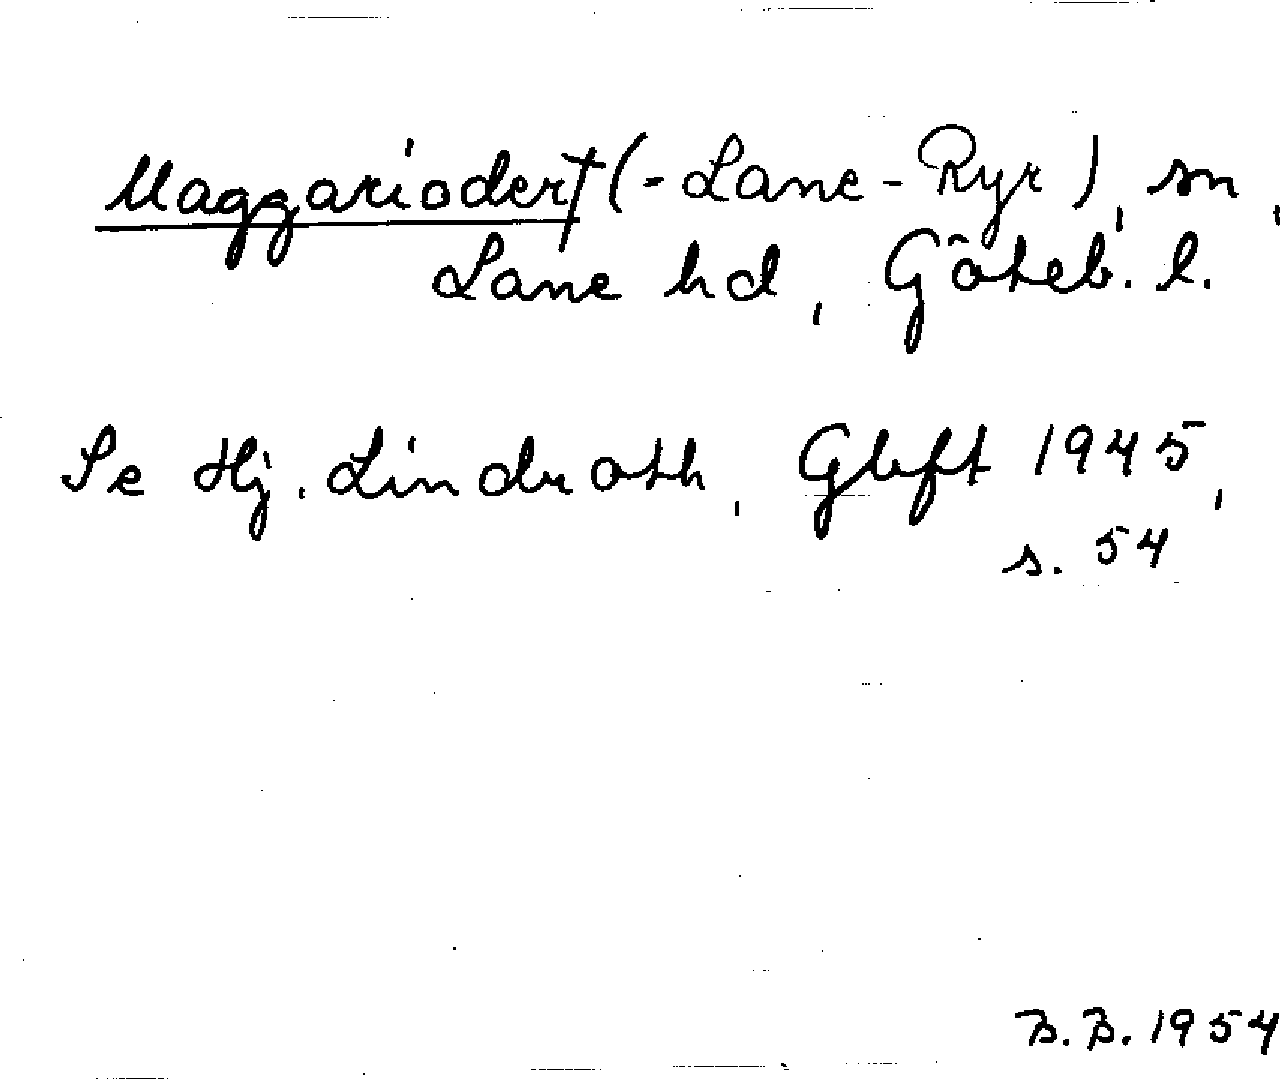 Maggariodert† (= Lane-Ryr), sn,
Lane hd, Göteb. l.
Se Hj. Lindroth, Gbft 1945,
s. 54
B.B. 1954